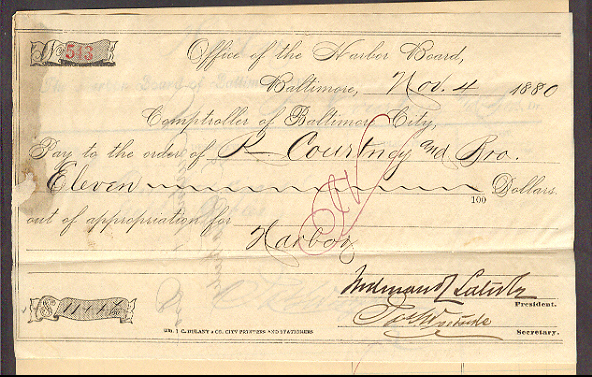 No. 543
Office of the Harbor Board,
Baltimore, Nov. 4 1880
Comptroller of Baltimore City,
Pay to the order of P Courtney and Bro.
Eleven 100 Dollars
out of appropriation for
Harbor
Ferdinand C Latrobe
President.
$ 11
Secretary.
WM. J. C. DULANY & CO. CITY PRINTERS AND STATIONERS